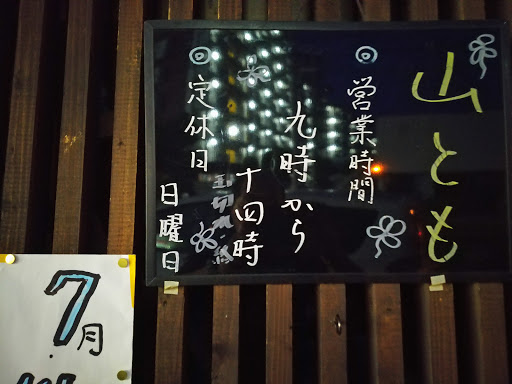 山とも
◎営業時間
九時から
十四時
玉切れ・終
◎定休日
日曜日
7月